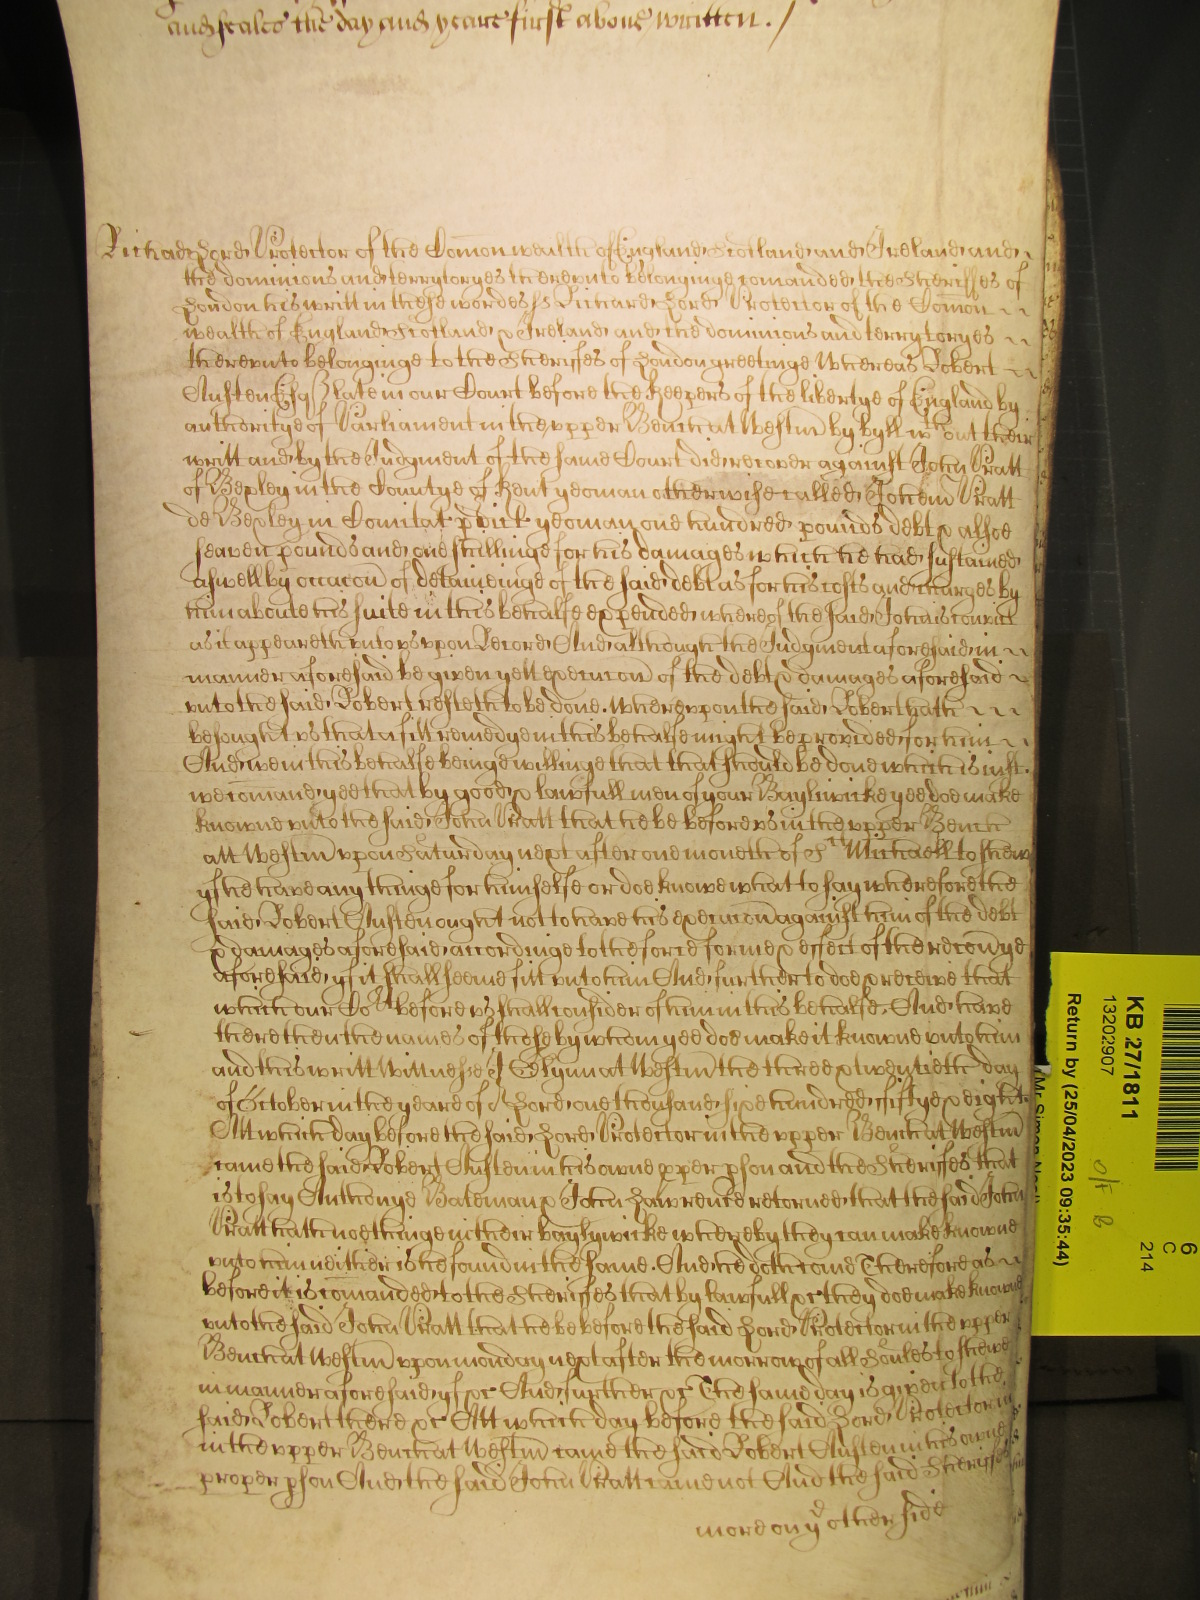 and seales the day and yeare first above written. /
Richard Lord Protector of the Comon wealth of England Scotland and Ireland and
the dominions and terrytoryes therevnto belonginge comanded the Sheriffes of
London his writt in these wordes ss Richard Lord Protector of the Comon
wealth of England Scotland & Ireland and the dominions and terrytoryes
therevnto belonginge to the Sheriffes of London greetinge Whereas Robert
Austen Esq late in our Court before the Keepers of the libertye of England by
authoritye of Parliament in the vpper Bench at Westm by byll wthout their
writt and by the Judgment of the same Court did recover against John Pratt
of Bexley in the Countye of Kent yeoman otherwise called Johem Pratt
de Bexley in Comitat pdict yeoman one hundred pounds debt & alsoe
seaven pounds and one shillinge for his damages which he had sustained
aswell by occacon of detaineinge of the said debt as for his costs and charges by
him aboute his suite in this behalfe expended whereof the said John is convict
as it appeareth vnto vs vpon Record And although the Judgment aforesaid in
manner aforesaid be given yett execucon of the debt & damages aforesaid
vnto the said Robert resteth to be done. Wherevpon the said Robert hath
besought vs that a fitt remedye in this behalfe might be provided for him
And we in this behalfe beinge willinge that that should be done which is iust
we comand yee that by good & lawfull men of your Baylywicke yee doe make
knowne vnto the said John Pratt that he be before vs in the vpper Bench
att Westm vpon Saturday next after one moneth of St Michaell to shew
yf he have any thinge for himselfe or doe knowe what to say wherefore the
said Robert Austen ought not to have his execucon against him of the debt
& damages aforesaid accordinge to the force forme & effect of the recovye
aforesaid yf it shall seeme fitt vnto him And further to doe & receive that
which our Cort before vs shall consider of him in this behalfe. And have
there then the names of those by whom yee doe make it knowne vnto him
and this writt Wittnesse J Glynn at Westm the three & twentieth day
of October in the yeare of or Lord one thousand sixe hundred fiftye & eight.
Att which day before the said Lord Protector in the vpper Bench at Westm
came the said Robert Austen in his owne pper pson and the Sheriffes that
is to say Anthonye Bateman & John Lawrence retorned that the said John
Pratt hath nothinge in their baylywicke whereby they can make knowne
vnto him neither is he found in the same. And he doth come Therefore as
before it is comanded to the Sheriffes that by lawfull &c they doe make knowne
vnto the said John Pratt that he be before the said Lord Protector in the vpper
Bench at Westm vpon monday next after the morrow of all Soules to shewe
in manner aforesaid yf &c And further &c The same day is given to the
said Robert there &c Att which day before the said Lord Protector
in the vpper Bench at Westm came the said Robert Austen in his owne
proper pson And the said John Pratt came not And the said Sheriffes
more on ye other side
KB 27/1811
13202907
Return by (25/04/2023 09:35:44)
6
C
214